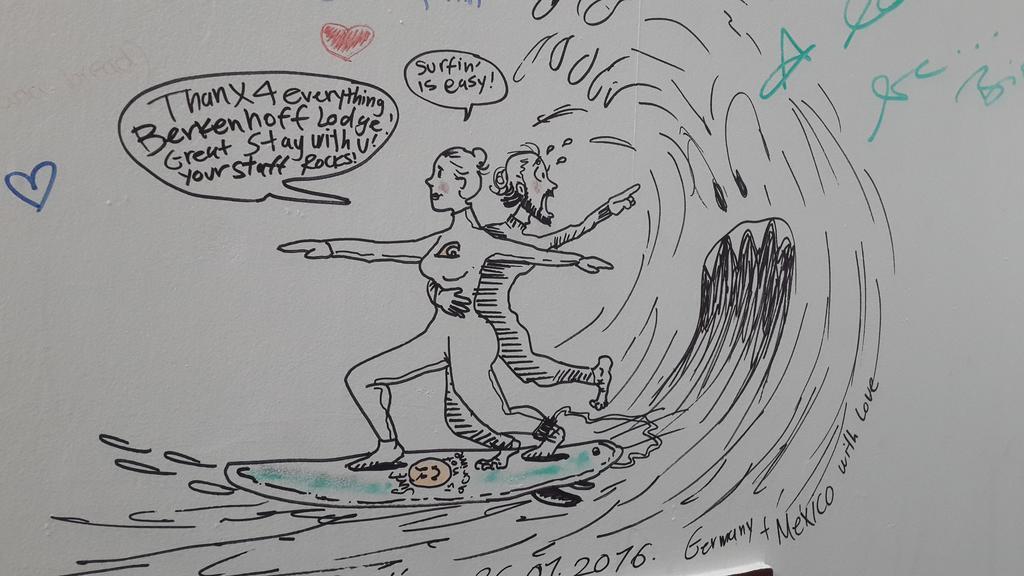 Surfin'
is easy!
ThanX 4 everything
Berkenhoff Lodge!
Great Stay with U!
your staff Rocks!
Germany + MeXICO with Love
01.2016.